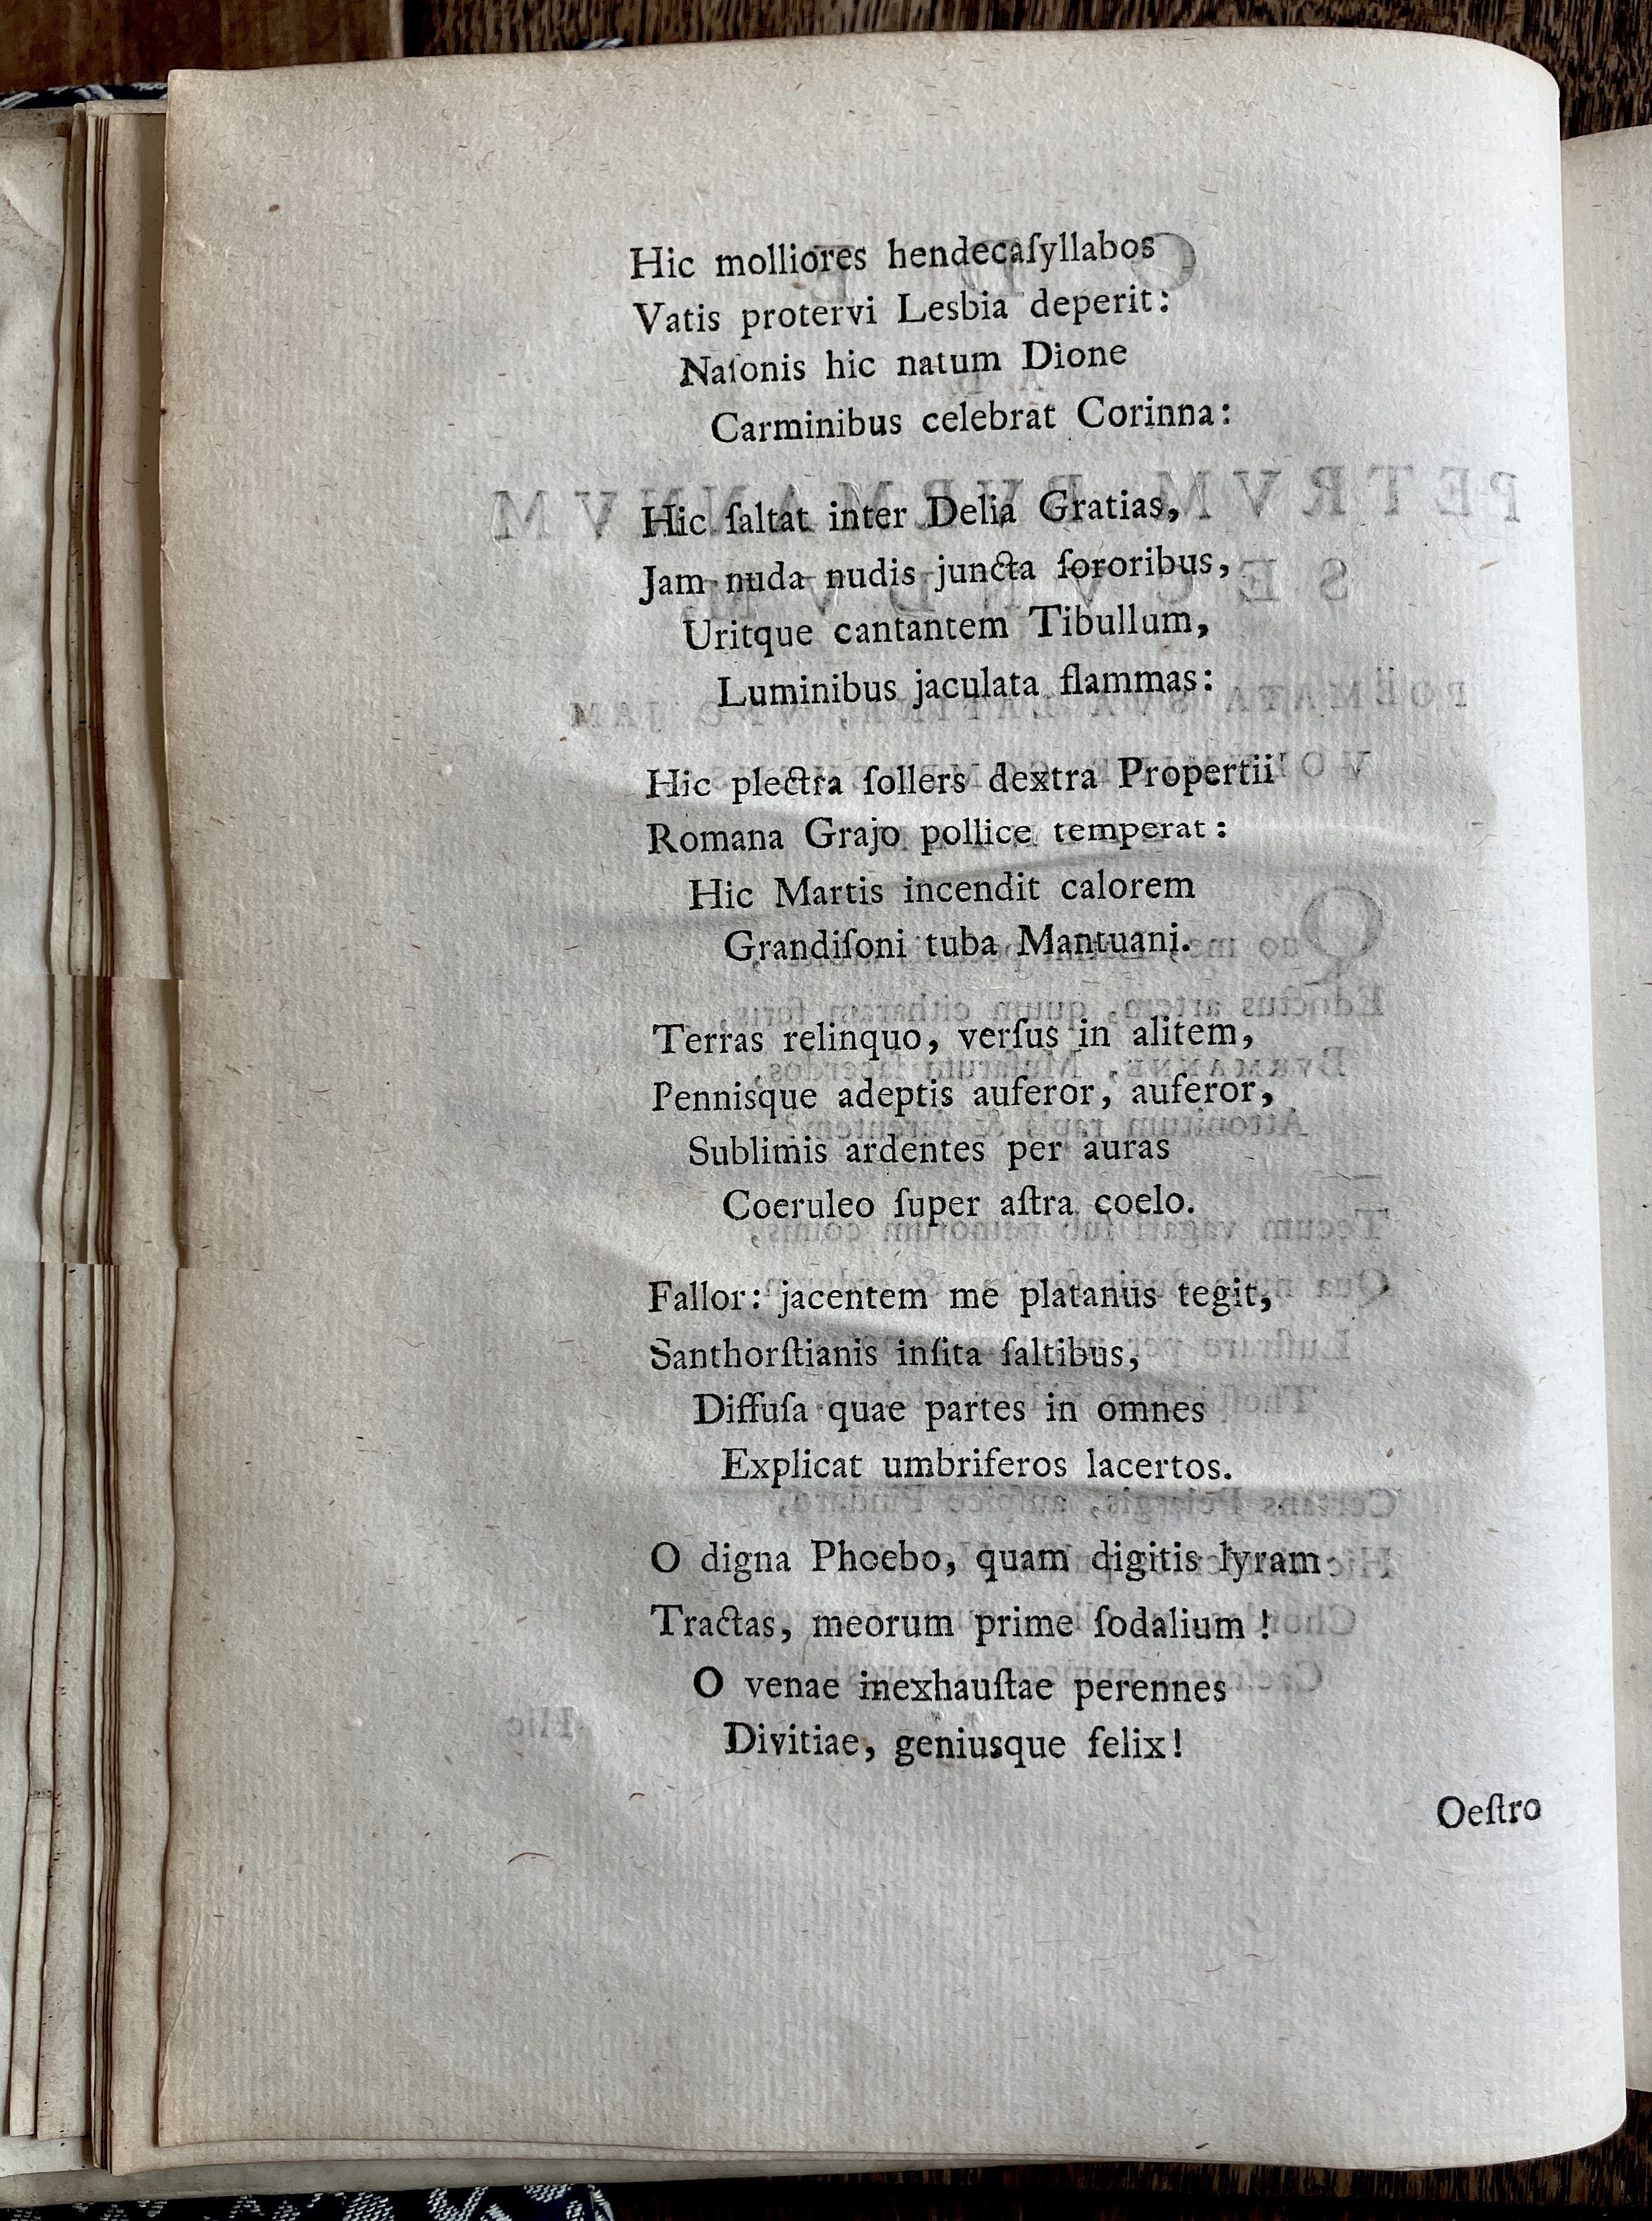 Hic molliores hendecaſyllabos
Vatis protervi Lesbia deperit:
Naſonis hic natum Dione
Carminibus celebrat Corinna:
Hic ſaltat inter Delia Gratias,
Jam nuda nudis juncta ſororibus,
Uritque cantantem Tibullum,
Luminibus jaculata flammas:
Hic plectra ſollers dextra Propertii
Romana Grajo pollice temperat:
Hic Martis incendit calorem
Grandiſoni tuba Mantuani.
Terras relinquo, verſus in alitem,
Pennisque adeptis auferor, auferor,
Sublimis ardentes per auras
Coeruleo ſuper aſtra coelo.
Fallor: jacentem me platanus tegit,
Santhorſtianis inſita ſaltibus,
Diffuſa quae partes in omnes
Explicat umbriferos lacertos.
O digna Phoebo, quam digitis lyram
Tractas, meorum prime ſodalium!
O venae inexhauſtae perennes
Divitiae, geniusque felix!
Oeſtro